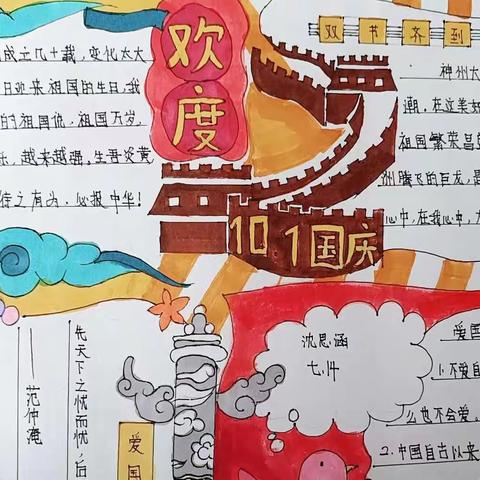 欢度
双节齐到
成立几十载,变化太大
日欢来祖国的生日,我
的祖国侬,祖国万岁,
乐,越来越强,生吾炎黄
待之有为,心报中华!
神州大
潮,在这美好
祖国繁荣昌
洲腾飞的巨龙,是
心中,在我心中,
10 1国庆
先天下之忧而忧,后
——范仲淹
爱国
沈思涵
七.14
爱国
1.不爱自
么也不会爱。
2.中国自古以来